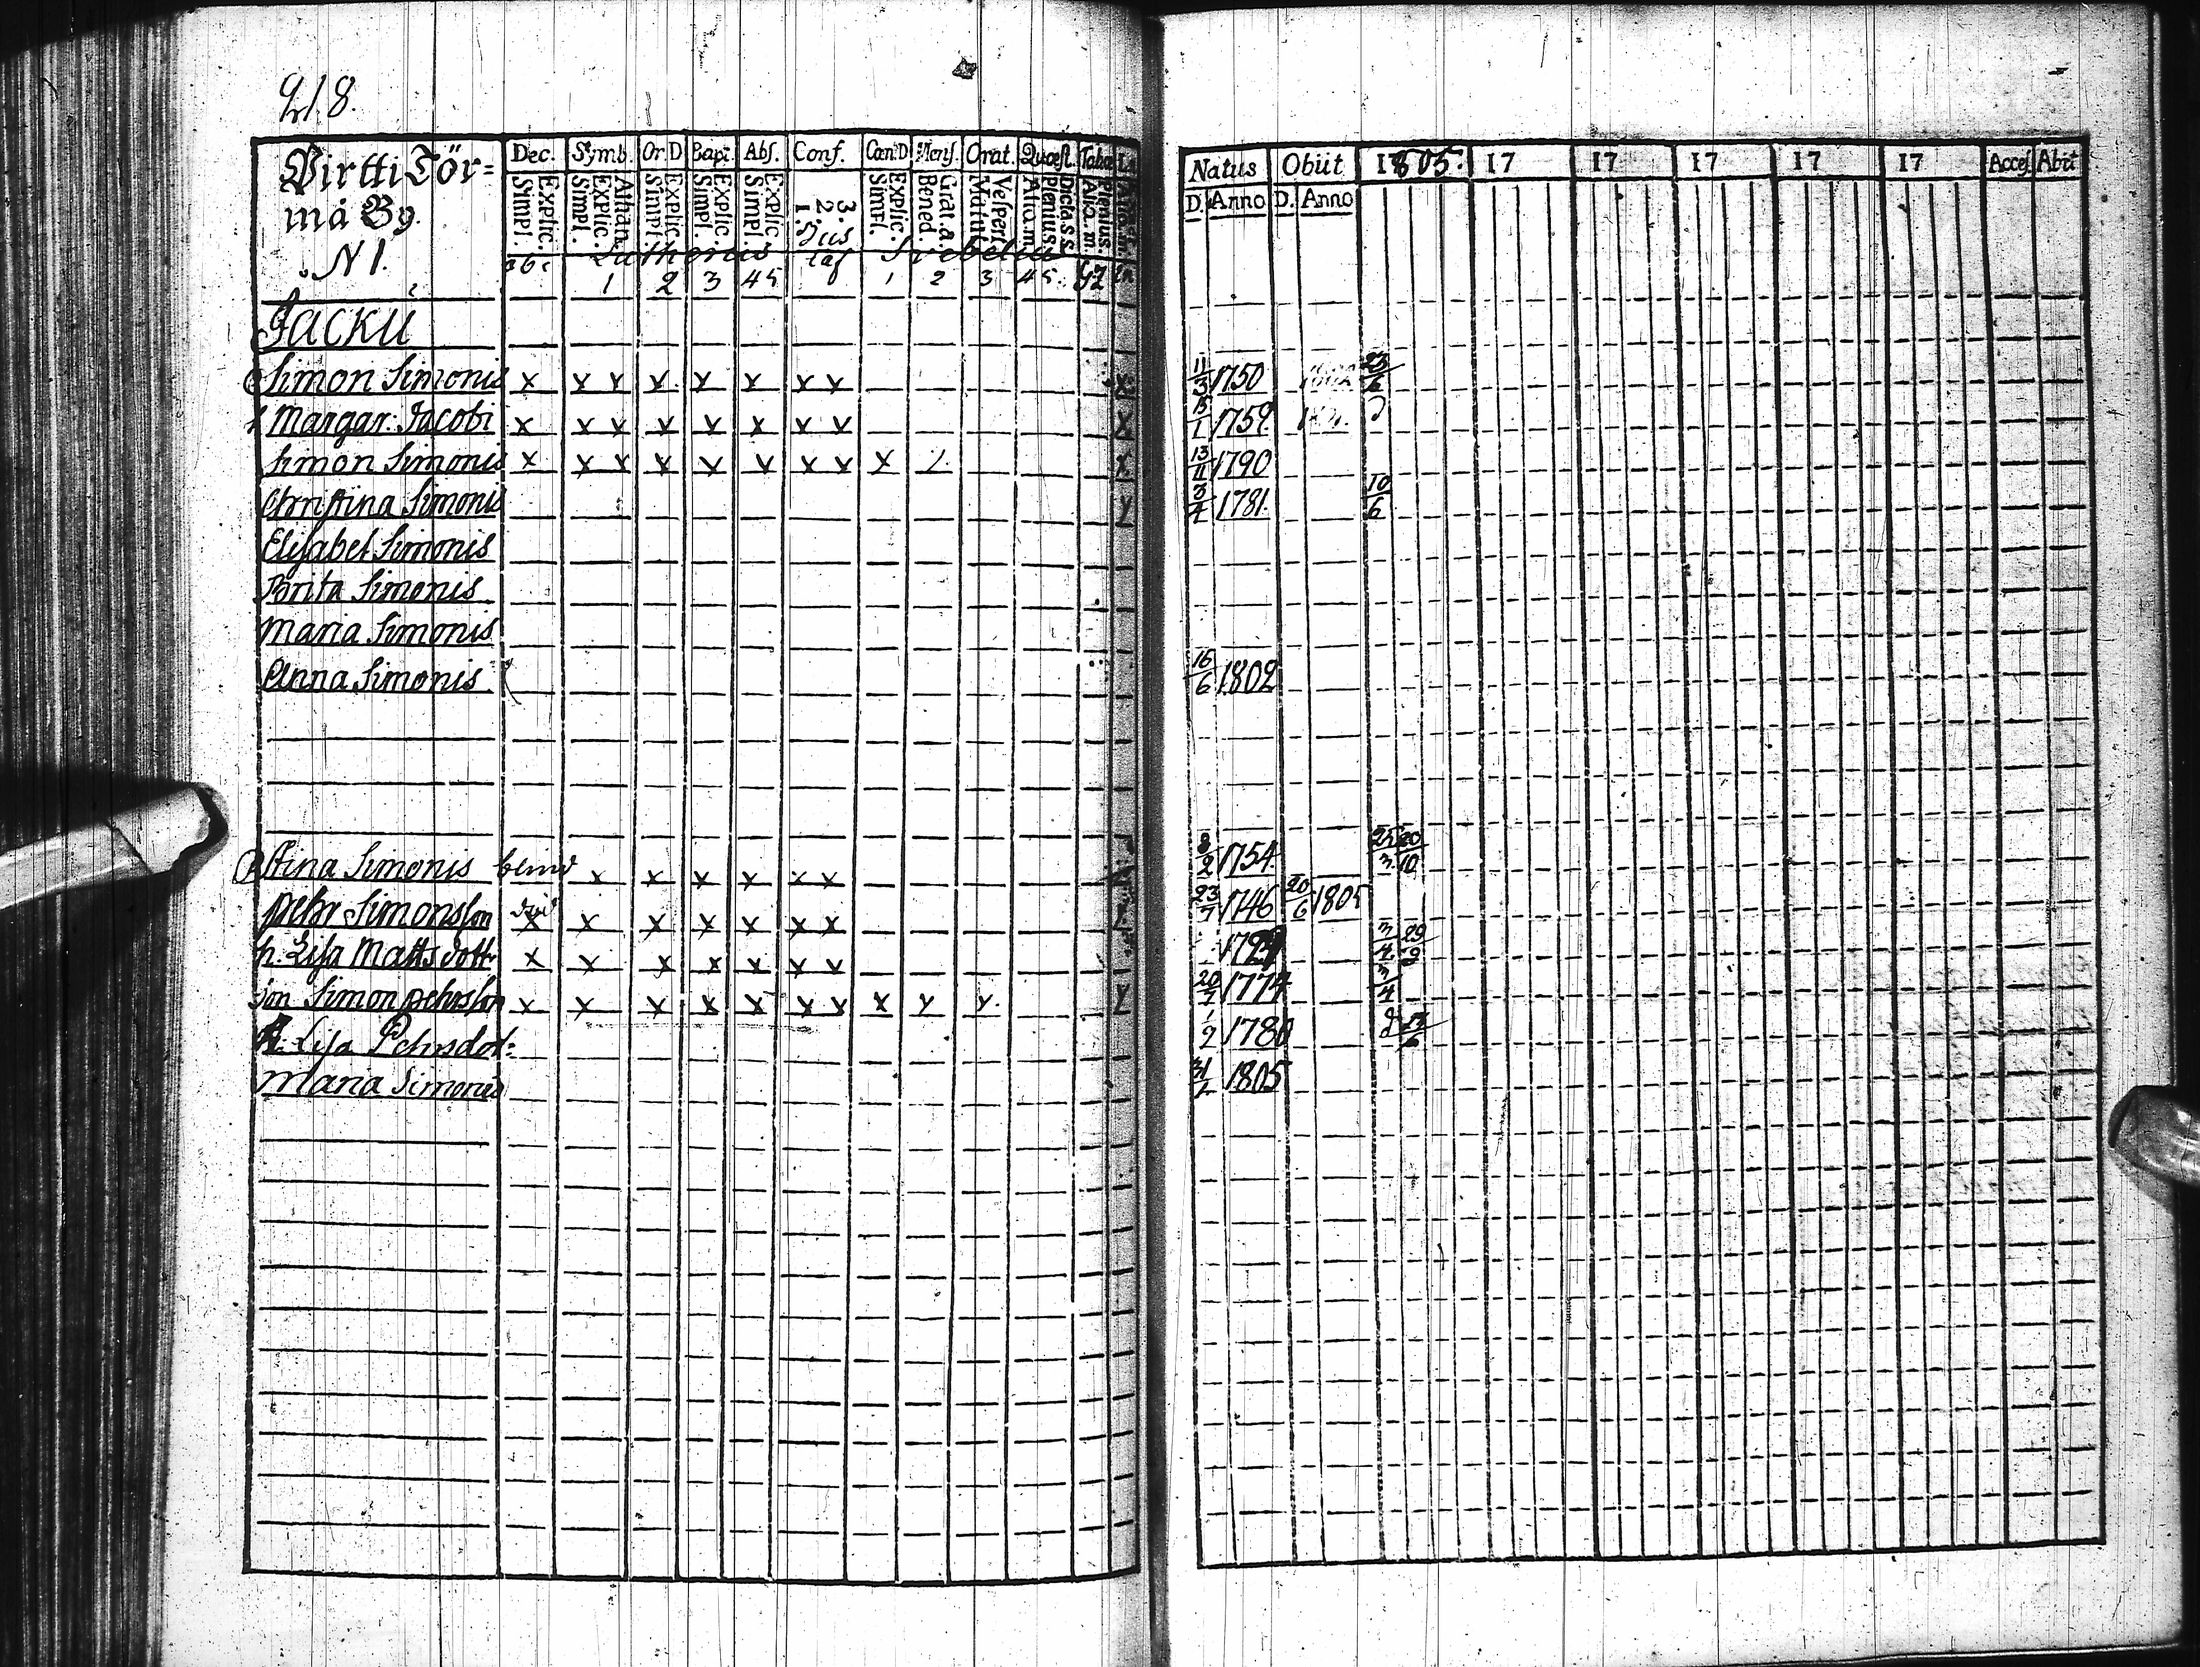 218.
Pirtti Tör=
mä By.
N 1.
Dec. Symb. Or. D Bapt. Abs. Conf. Cœn. D Mens. Orat. Quæst. Tabæ
Explic. Simpl. Athan. Explic. Simpl. Explic. Simpl. Explic. Simpl. Explic. Simpl. 3. 2. 1. Explic. Simpl. Grat. a. Bened. Vespert. Matut. Dicta S. S. Plenius. Alio. m. Plenius. Alio. m.
abc Lutherus Svebelius
1 2 3 4 5 1 2 3 4 5
Jacku
Simon Simonis x x x x x x x x
h Margar: Jacobi x x x x x x x x
Simon Simonis x x x x x x x x x
Christina Simonis
Elisabet Simonis
Brita Simonis
Maria Simonis
Anna Simonis
Stina Simonis blind x x x x x x
Pehr Simonsson x x x x x x x
h. Lisa Mattsdottr x x x x x x x
son Simon Pehrsson x x x x x x x x x x
h. Lisa Pehrsdot:
Maria Simonis
Natus Obiit 1805. 17 17 17 17 17 Acces. Abit
D. Anno D. Anno
11/3 1750 23/6
15/1 1759.
13/11 1790
1781. 10/6
16/6 1802
8/2 1754 25/3 20/10
23/7 1746 20/6 1805
3/4 29/9
20/7 1774 3/4
1/2 1780
1805